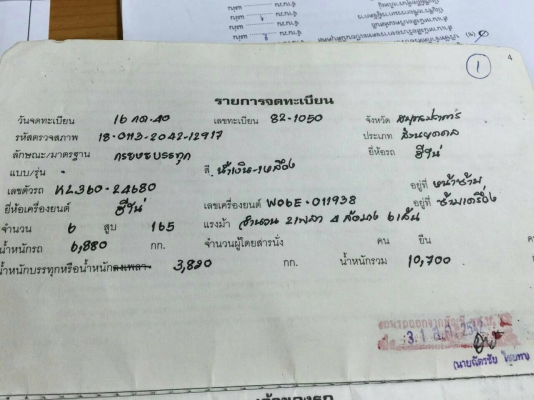 1
4
รายการจดทะเบียน
วันจดทะเบียน 16 กค. 40 เลขทะเบียน 82-1050 จังหวัด สมุทรปราการ
รหัสตรวจสภาพ 18-0113-2042-12917 ประเภท ส่วนบุคคล
ลักษณะ/มาตรฐาน กระบะบรรทุก ยี่ห้อรถ ฮีโน่
แบบ/รุ่น - สี น้ำเงิน-เหลือง
เลขตัวรถ KL360-24680 อยู่ที่ หน้าซ้าย
ยี่ห้อเครื่องยนต์ ฮีโน่ เลขเครื่องยนต์ W06E-011938 อยู่ที่ ซ้ายเครื่อง
จำนวน 6 สูบ 165 แรงม้า จำนวน 2 เพลา 4 ล้อ ยาง 6 เส้น
น้ำหนักรถ 6,880 กก. จำนวนผู้โดยสารนั่ง คน ยืน
น้ำหนักบรรทุกหรือน้ำหนักลงเพลา 3,820 กก. น้ำหนักรวม 10,700
31
(นายฉัตรชัย